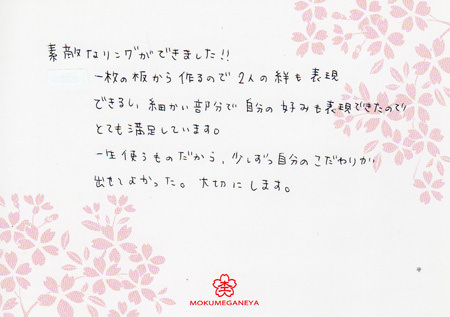 素敵なリングができました!!
一枚の板から作るので2人の絆も表現
できるし、細かい部分で自分の好みも表現できたので
とても満足しています。
一生使うものだから、少しずつ自分のこだわりが
出せてよかった。大切にします。
MOKUMEGANEYA